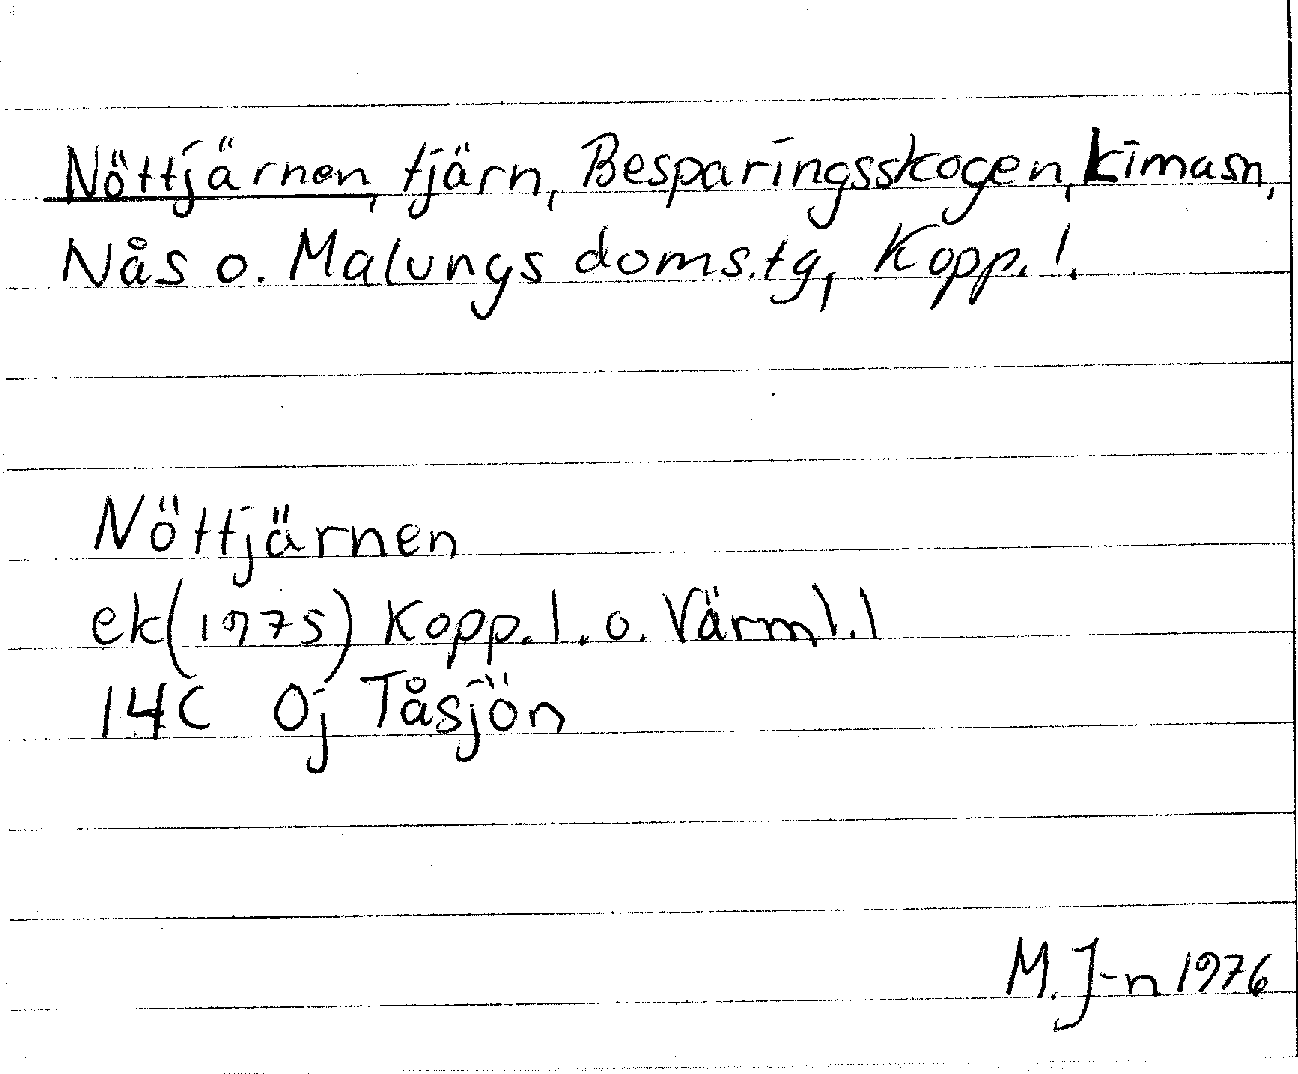 Nöttjärnen, tjärn, Besparingsskogen, Limasn,
Nås o. Malungs doms.tg, Kopp. l.
Nöttjärnen
ek(1975) Kopp. l. o. Värml. l
14C 0j Tåsjön
M. J-n 1976